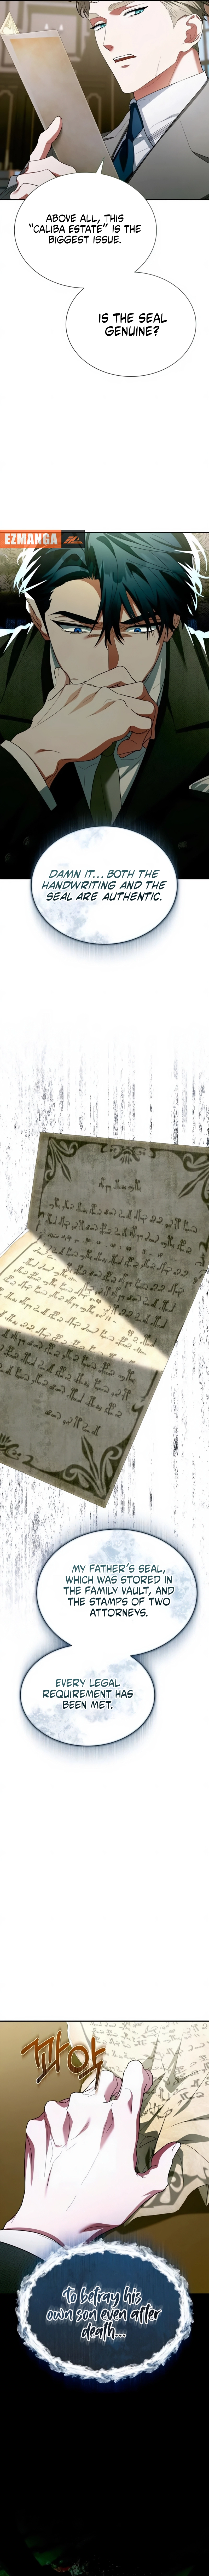 ABOVE ALL, THIS
"CALIBA ESTATE" IS THE
BIGGEST ISSUE.
IS THE SEAL
GENUINE?
EZMANGA
DAMN IT... BOTH THE
HANDWRITING AND THE
SEAL ARE AUTHENTIC.
MY FATHER'S SEAL,
WHICH WAS STORED IN
THE FAMILY VAULT, AND
THE STAMPS OF TWO
ATTORNEYS.
EVERY LEGAL
REQUIREMENT HAS
BEEN MET.
콰악
to betray his
own son even after
death...